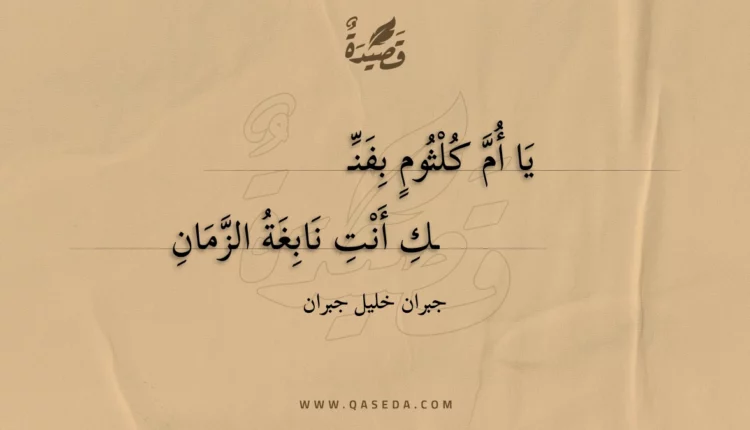 قَصِيدَةٌ
يَا أُمَّ كُلْثُومٍ بِفَنِّـ
ـكِ أَنْتِ نَابِغَةُ الزَّمَانِ
جبران خليل جبران
WWW.QASEDA.COM